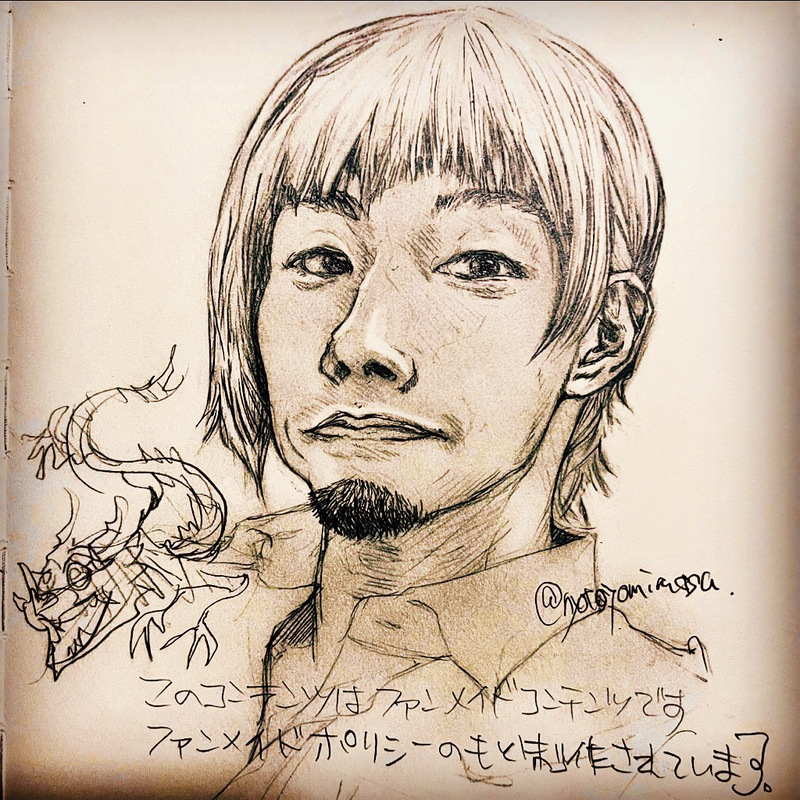 @motoyamirossa.
このコンテンツはファンメイドコンテンツです
ファンメイドポリシーのもと制作されています。